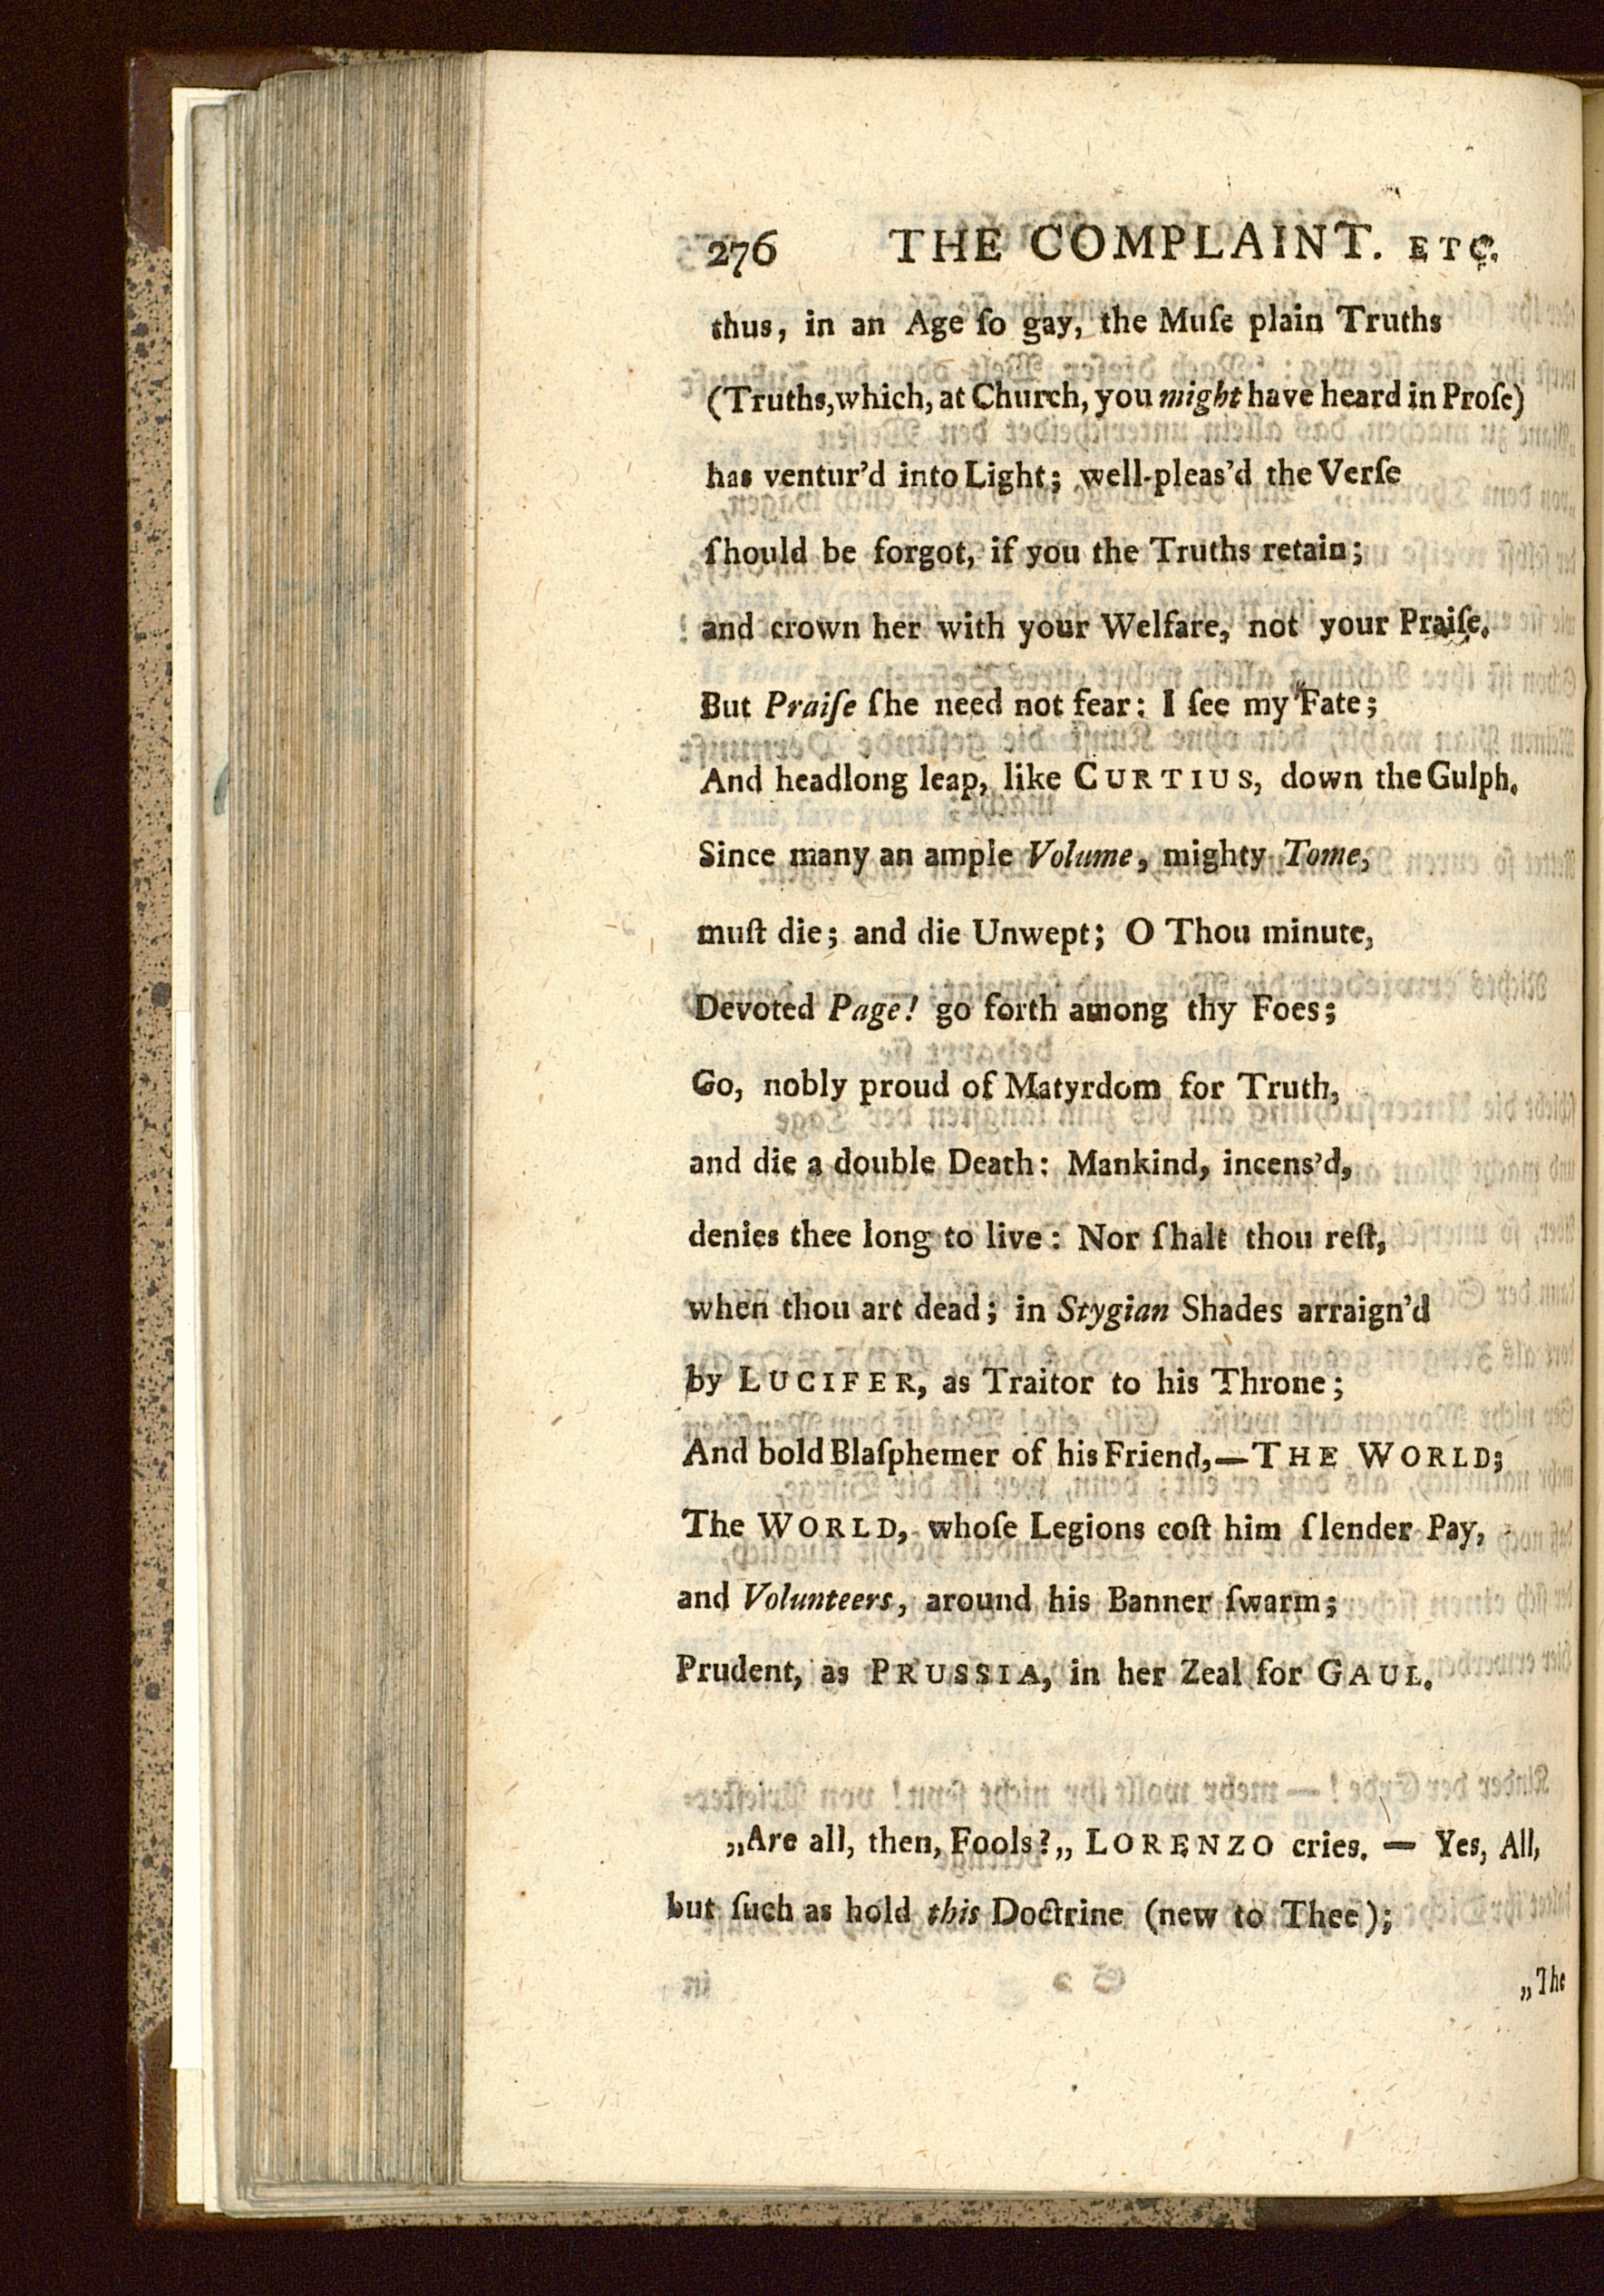 276 THE COMPLAINT. ETC.
thus, in an Age ſo gay, the Muſe plain Truths
(Truths, which, at Church, you might have heard in Proſe)
has ventur'd into Light; well-pleas'd the Verſe
ſhould be forgot, if you the Truths retain;
and crown her with your Welfare, not your Praiſe.
But Praiſe ſhe need not fear: I ſee my Fate;
And headlong leap, like CURTIUS, down the Gulph.
Since many an ample Volume, mighty Tome,
muſt die; and die Unwept; O Thou minute,
Devoted Page! go forth among thy Foes;
Go, nobly proud of Matyrdom for Truth,
and die a double Death: Mankind, incens'd,
denies thee long to live: Nor ſhalt thou reſt,
when thou art dead; in Stygian Shades arraign'd
by LUCIFER, as Traitor to his Throne;
And bold Blaſphemer of his Friend,—THE WORLD;
The WORLD, whoſe Legions coſt him ſlender Pay,
and Volunteers, around his Banner ſwarm;
Prudent, as PRUSSIA, in her Zeal for GAUL.
„Are all, then, Fools?„ LORENZO cries. — Yes, All,
but ſuch as hold this Doctrine (new to Thee);
„The